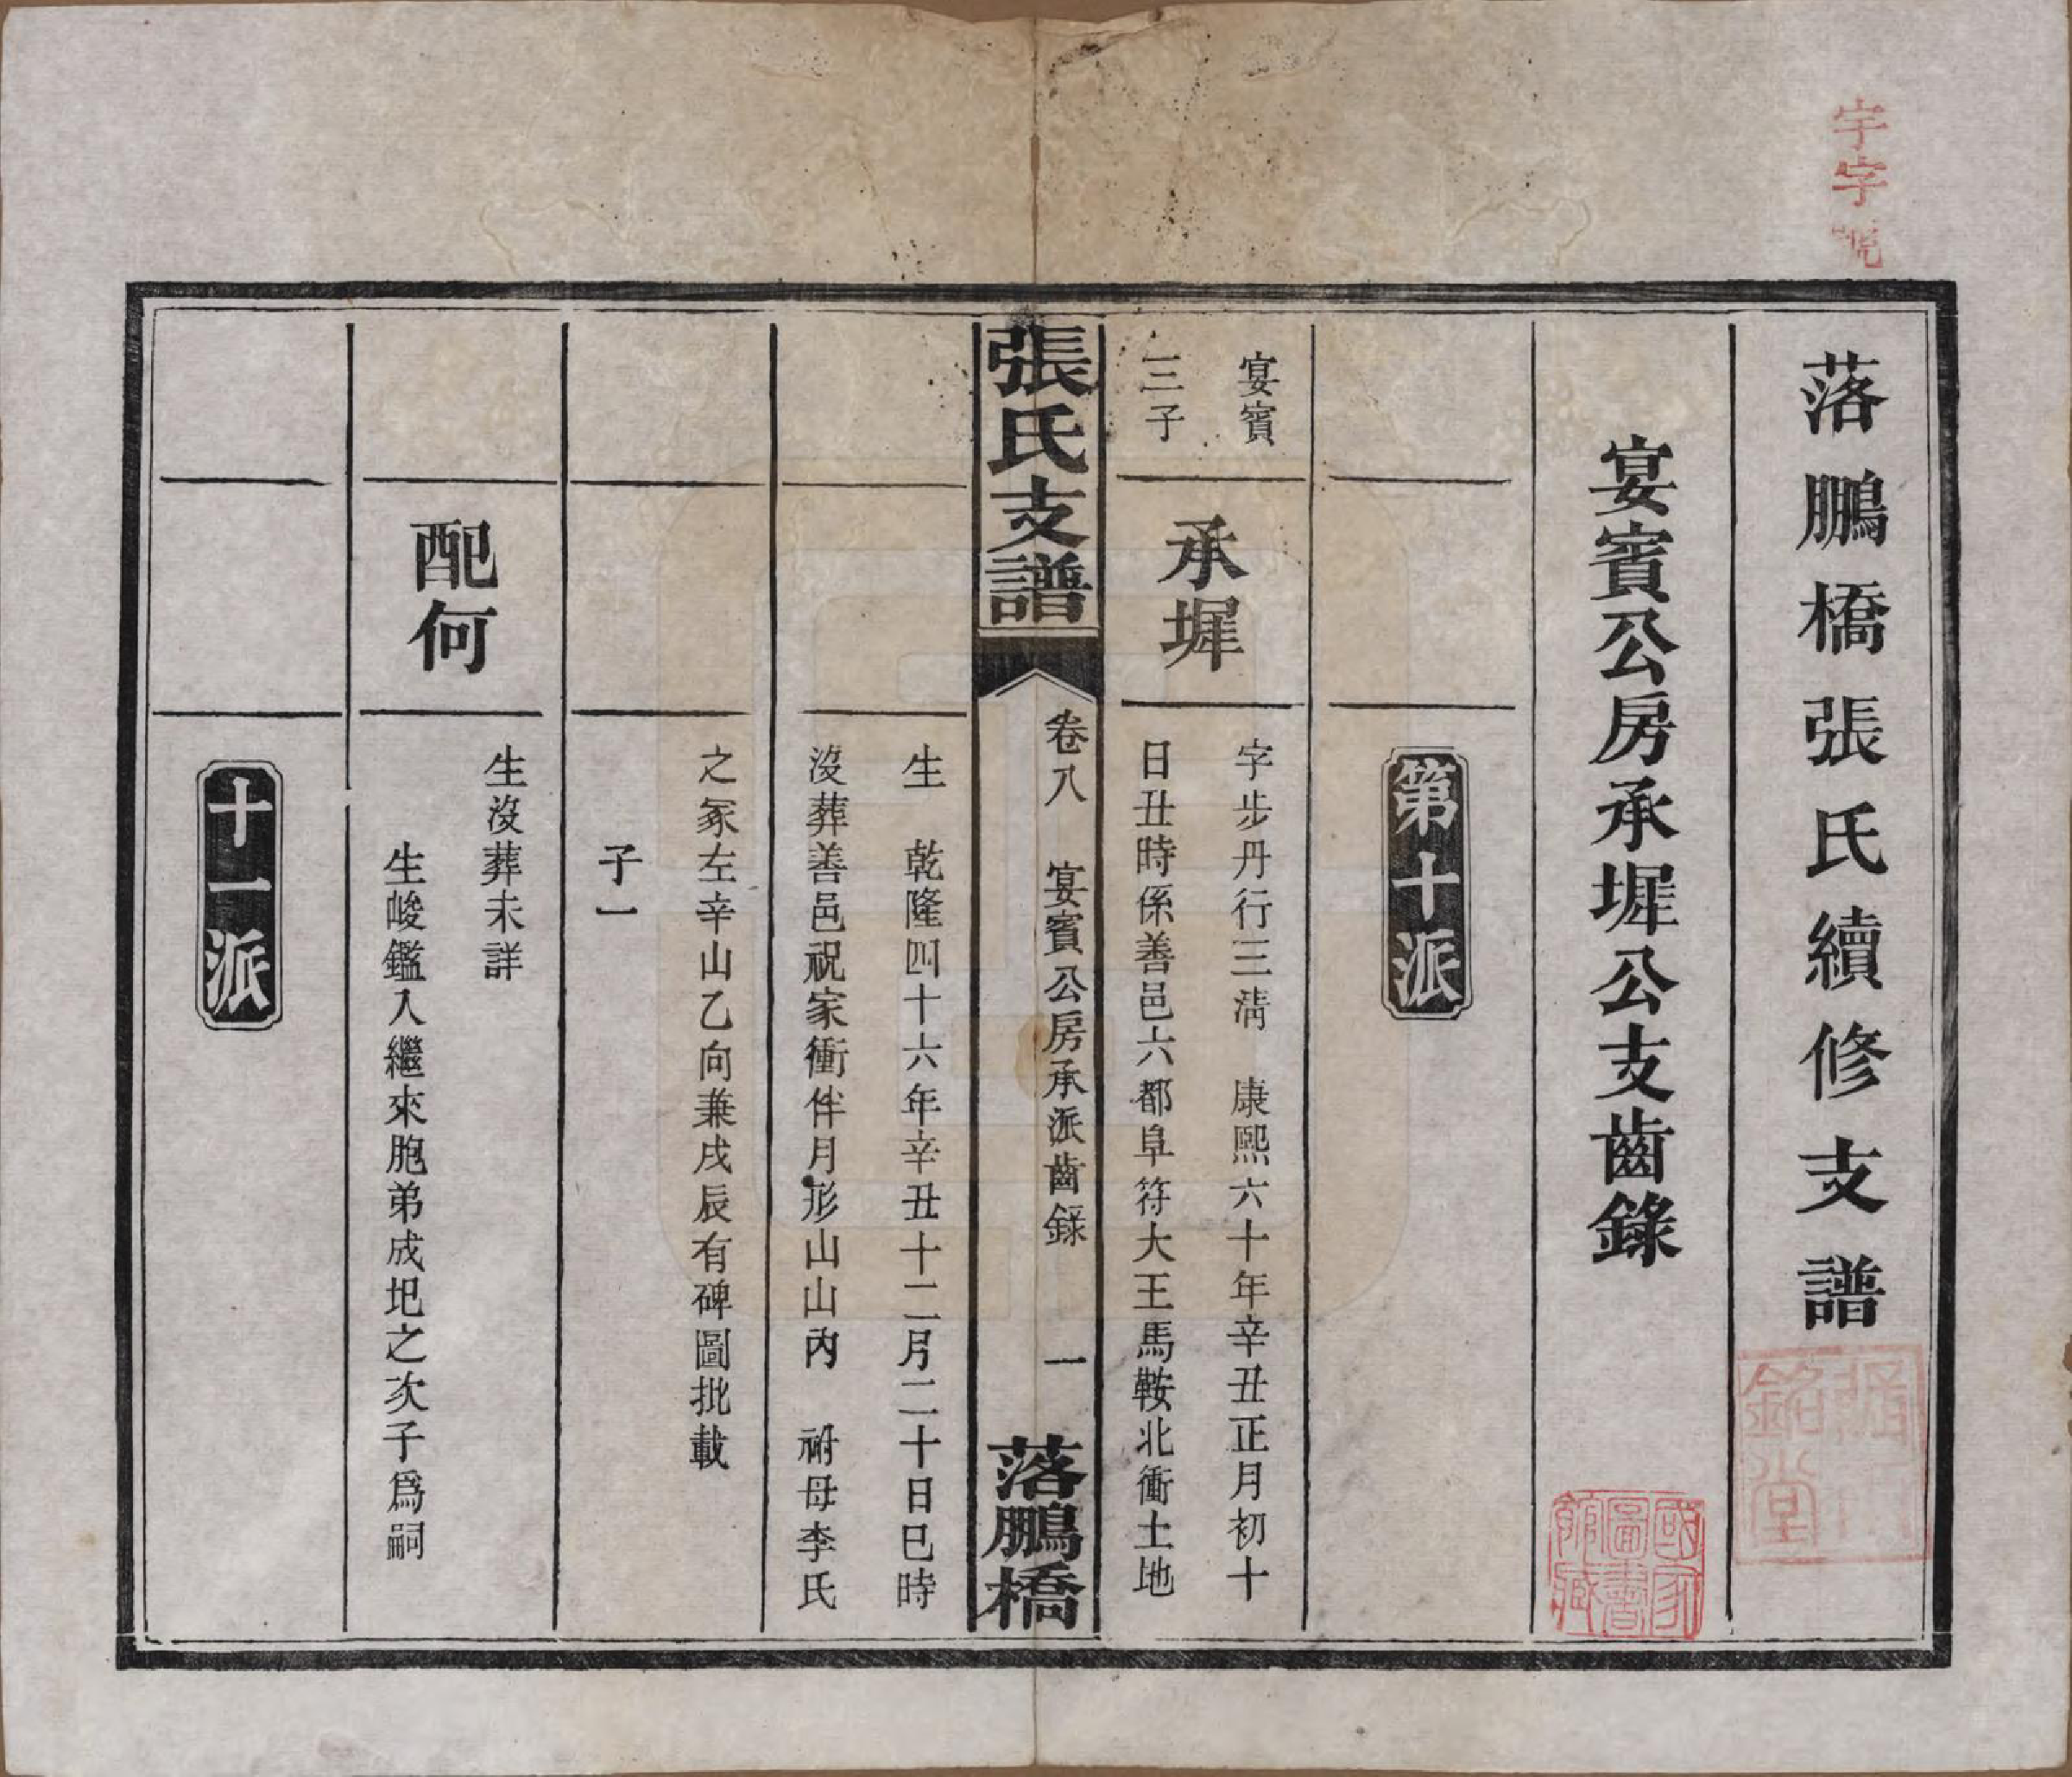 宇字號
落鵬橋張氏續修支譜
宴賓公房承墀公支齒錄
第十派
宴賓
三子
承墀
字步丹行三淸　康熙六十年辛丑正月初十
日丑時係善邑六都阜符大王馬鞍北衝土地
張氏支譜
卷八　宴賓公房承派齒錄　一
落鵬橋
生　乾隆四十六年辛丑十二月二十日巳時
沒葬善邑祝家衝伴月形山山內　祔母李氏
之冢左辛山乙向兼戌辰有碑圖批載
子一
配何
生沒葬未詳
生峻鑑入繼來胞弟成圯之次子爲嗣
十一派
國家
圖書
館藏
銘堂